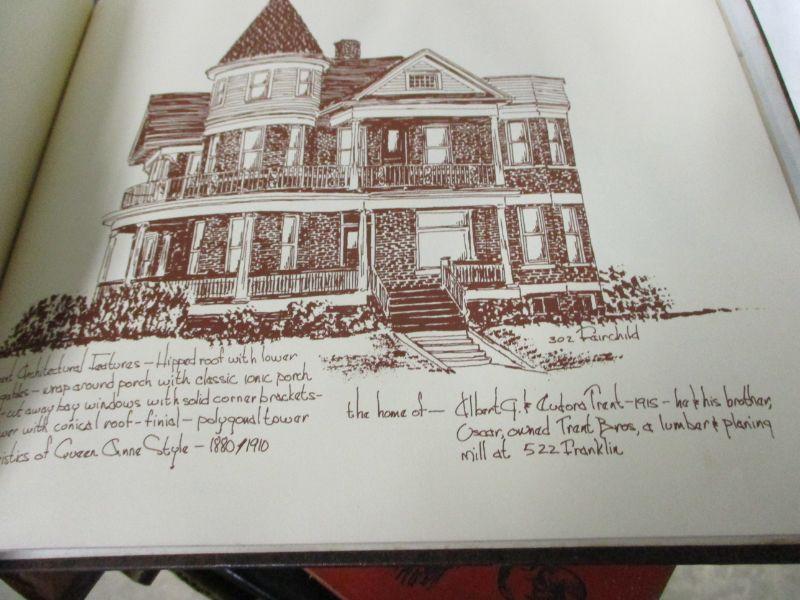 302 Fairchild
Architectural Features - Hipped roof with lower
gables - wrap around porch with classic ionic porch
-cut away bay windows with solid corner brackets-
with conical roof - finial - polygonal tower
of Queen Anne Style - 1880/1910
the home of - Albert G. & Eudora Trent - 1915 - he & his brother,
Oscar, owned Trent Bros, a lumber & planing
mill at 522 Franklin